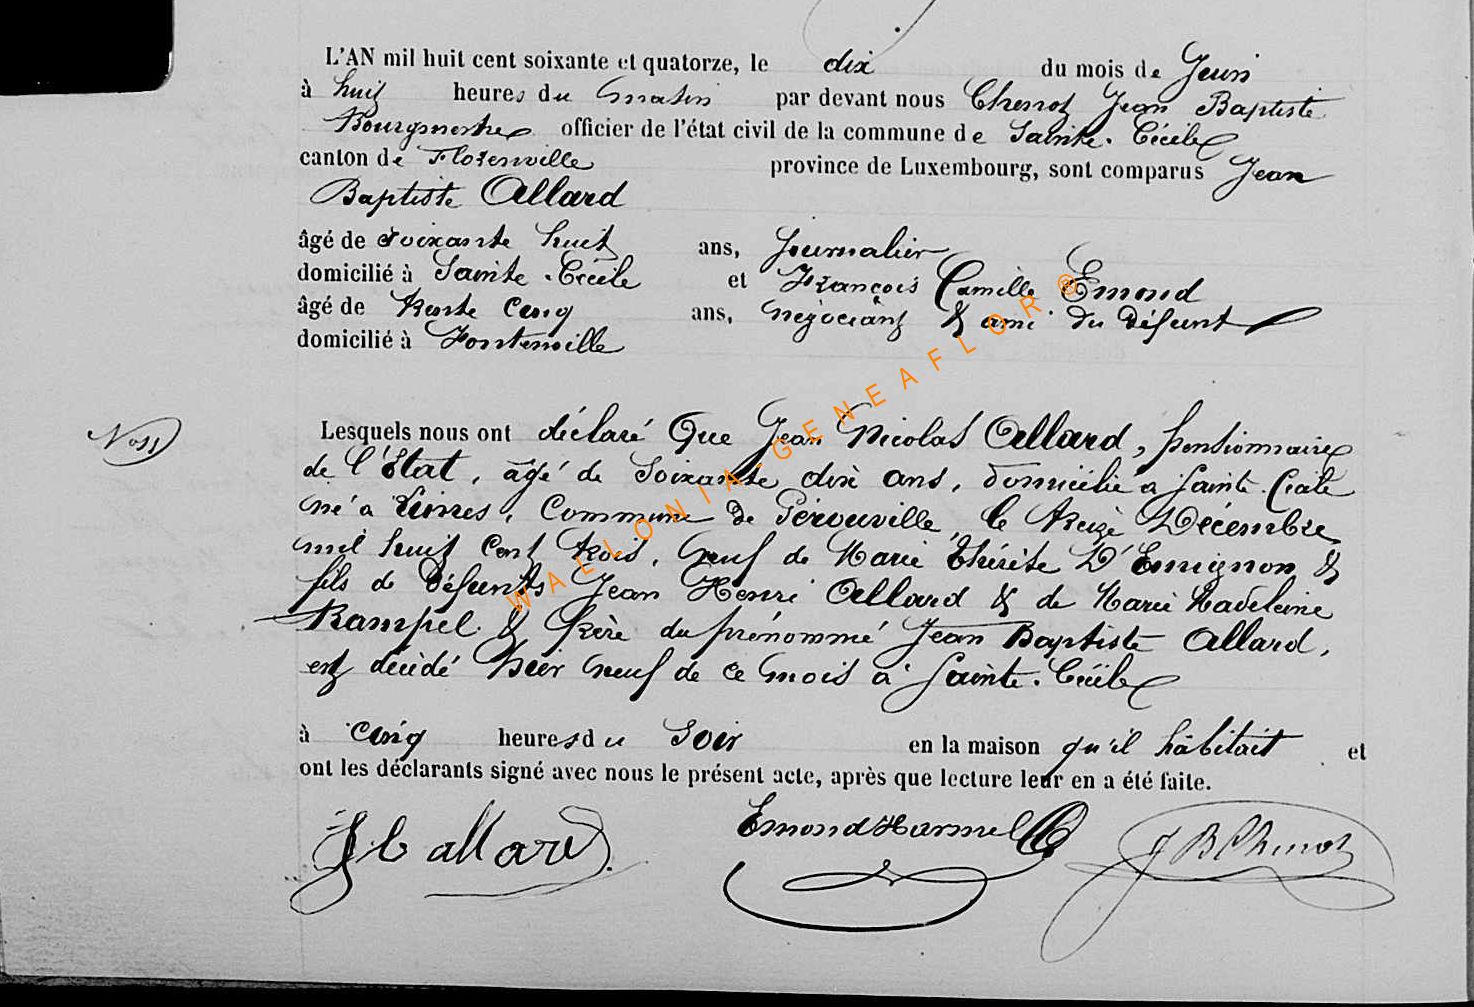 L'AN mil huit cent soixante et quatorze, le dix du mois de Juin
à huit heures du matin par devant nous Chenot Jean Baptiste
Bourgmestre officier de l'état civil de la commune de Sainte-Cécile
canton de Florenville province de Luxembourg, sont comparus Jean
Baptiste Allard
âgé de soixante huit ans, Journalier
domicilié à Sainte-Cécile et François Camille Emond
âgé de trente cinq ans, négociant & ami du défunt
domicilié à Fontenoille
Lesquels nous ont déclaré que Jean Nicolas Allard, pensionnaire
N° 11
de l'État, âgé de soixante dix ans, domicilié à Sainte-Cécile
né à Limes, Commune de Gérouville, le treize Décembre
mil huit cent trois, veuf de Marie Thérèse D'Emignon &
fils de défunts Jean Henri Allard & de Marie Madeleine
Rampel & frère du prénommé Jean Baptiste Allard,
est décédé hier neuf de ce mois à Sainte-Cécile
à cinq heures du soir en la maison qu'il habitait et
ont les déclarants signé avec nous le présent acte, après que lecture leur en a été faite.
JB allard
Emond Harmel
JB Chenot
WALLONIA-GENEAFLOR ®